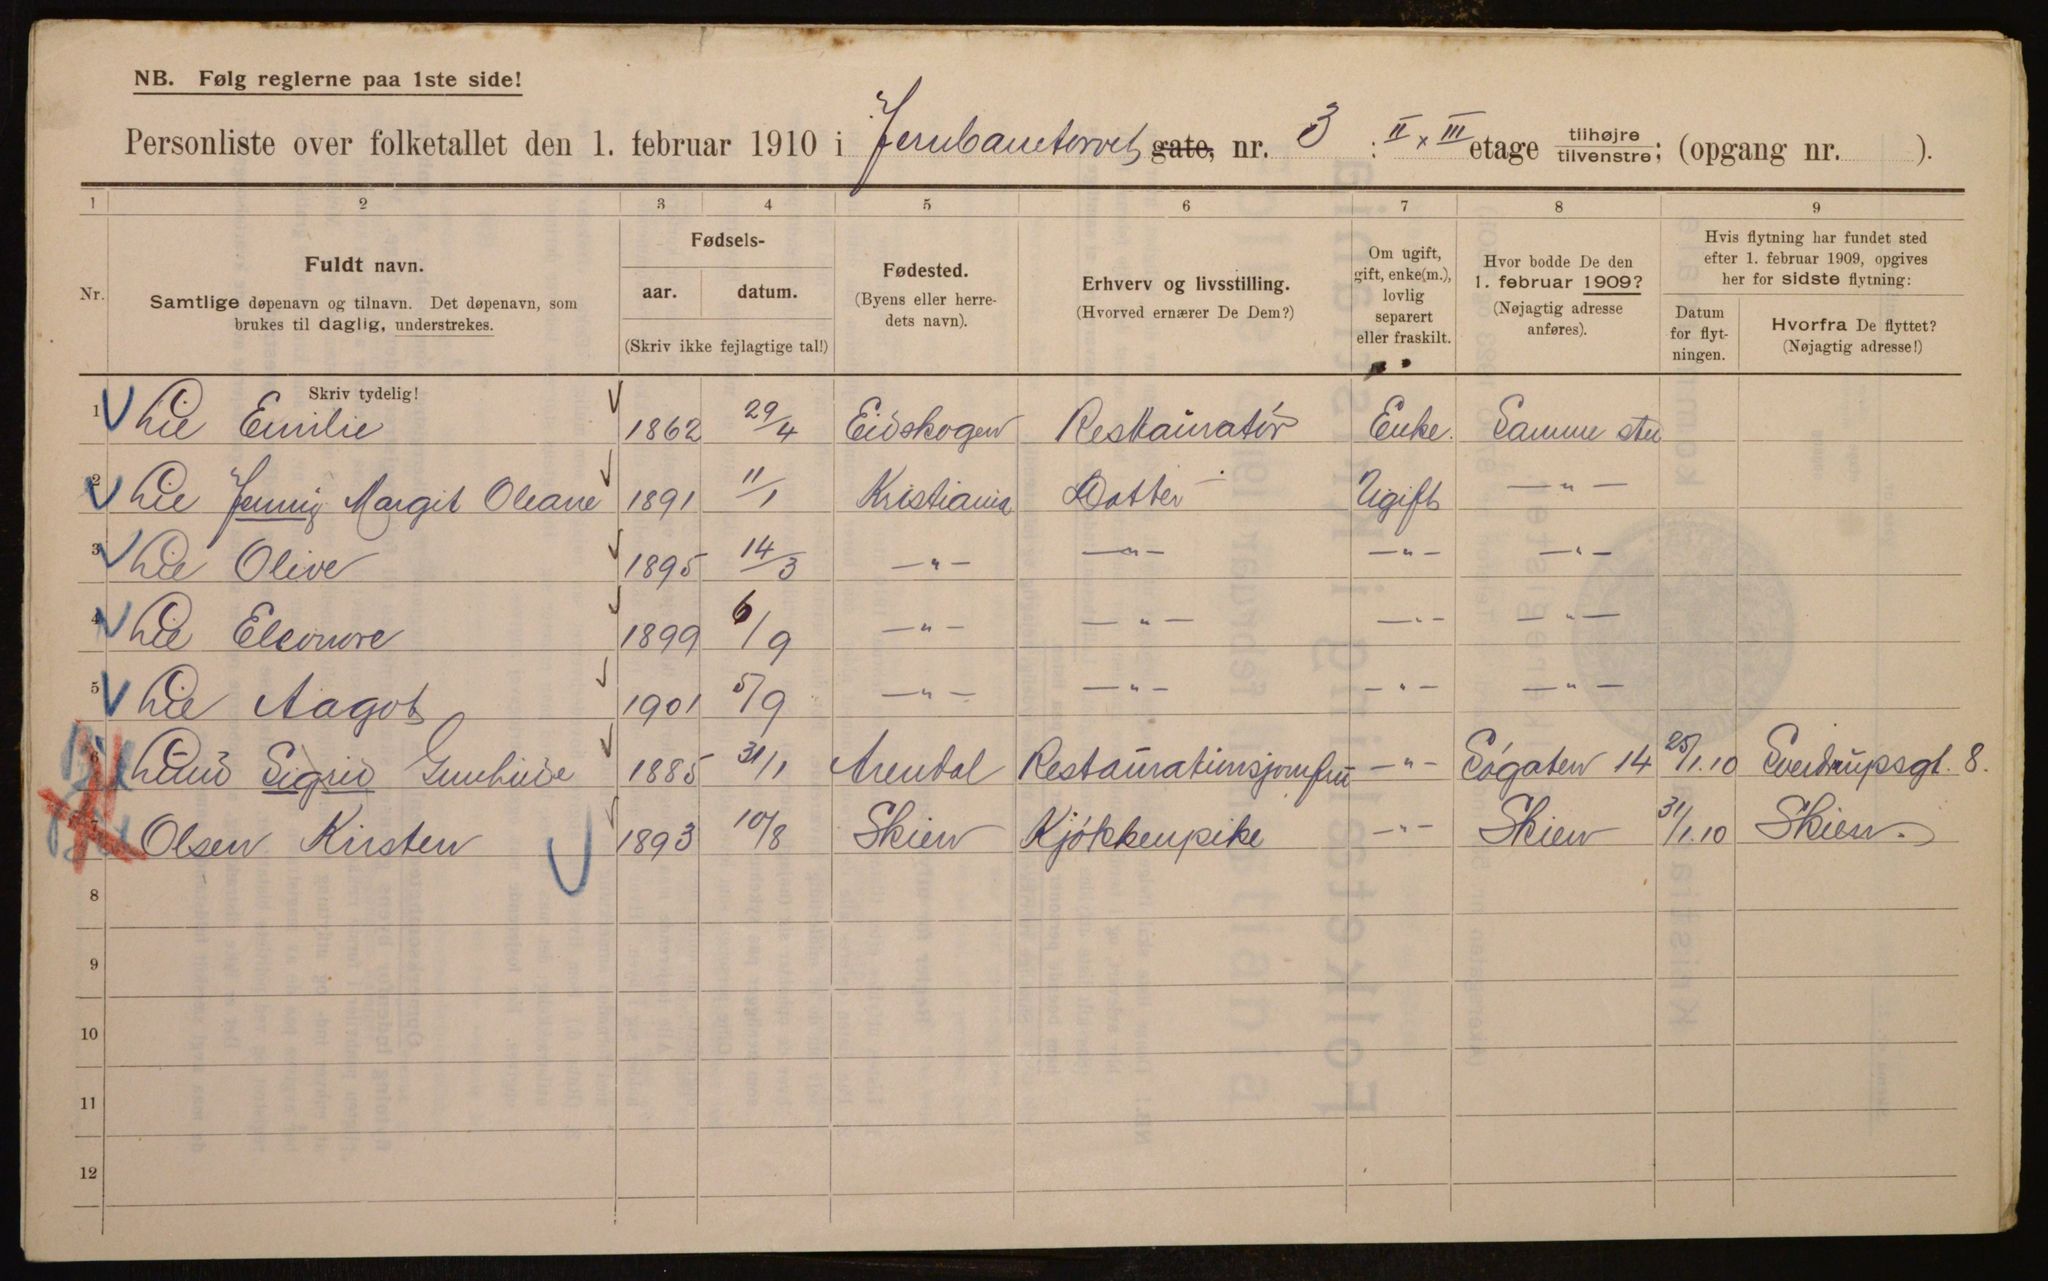 NB. Følg reglerne paa 1ste side!
Personliste over folketallet den 1. februar 1910 i Jernbanetorvet gate, nr. 3 : II × III etage tilhøjre / tilvenstre; (opgang nr. ).
1 2 3 4 5 6 7 8 9
Nr.
Fuldt navn.
Samtlige døpenavn og tilnavn. Det døpenavn, som
brukes til daglig, understrekes.
Skriv tydelig!
Fødsels-
aar. datum.
(Skriv ikke fejlagtige tal!)
Fødested.
(Byens eller herre-
dets navn).
Erhverv og livsstilling.
(Hvorved ernærer De Dem?)
Om ugift,
gift, enke(m.),
lovlig
separert
eller fraskilt.
Hvor bodde De den
1. februar 1909?
(Nøjagtig adresse
anføres).
Hvis flytning har fundet sted
efter 1. februar 1909, opgives
her for sidste flytning:
Datum
for flyt-
ningen.
Hvorfra De flyttet?
(Nøjagtig adresse!)
1 Lie Emilie 1862 29/4 Eidskogen Restauratør Enke. Samme sted
2 Lie Jenny Margit Oleane 1891 11/1 Kristiania Datter Ugift —"—
3 Lie Olive 1895 14/3 —"— —"— —"— —"—
4 Lie Eleonore 1899 6/9 —"— —"— —"— —"—
5 Lie Aagot 1901 5/9 —"— —"— —"— —"—
6 Lund Sigrid Gunhilde 1885 31/1 Arendal Restaurationsjomfru —"— Søgaten 14 25/1.10 Sverdrupsgt. 8.
7 Olsen Kirsten 1893 10/8 Skien Kjøkkenpike —"— Skien 31/1.10 Skien.
8
9
10
11
12